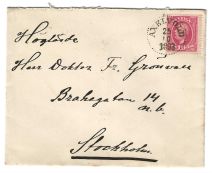 Högläste
Herr Doktor Fr. Grönvall
Brahegatan 14
n.b.
Stockholm